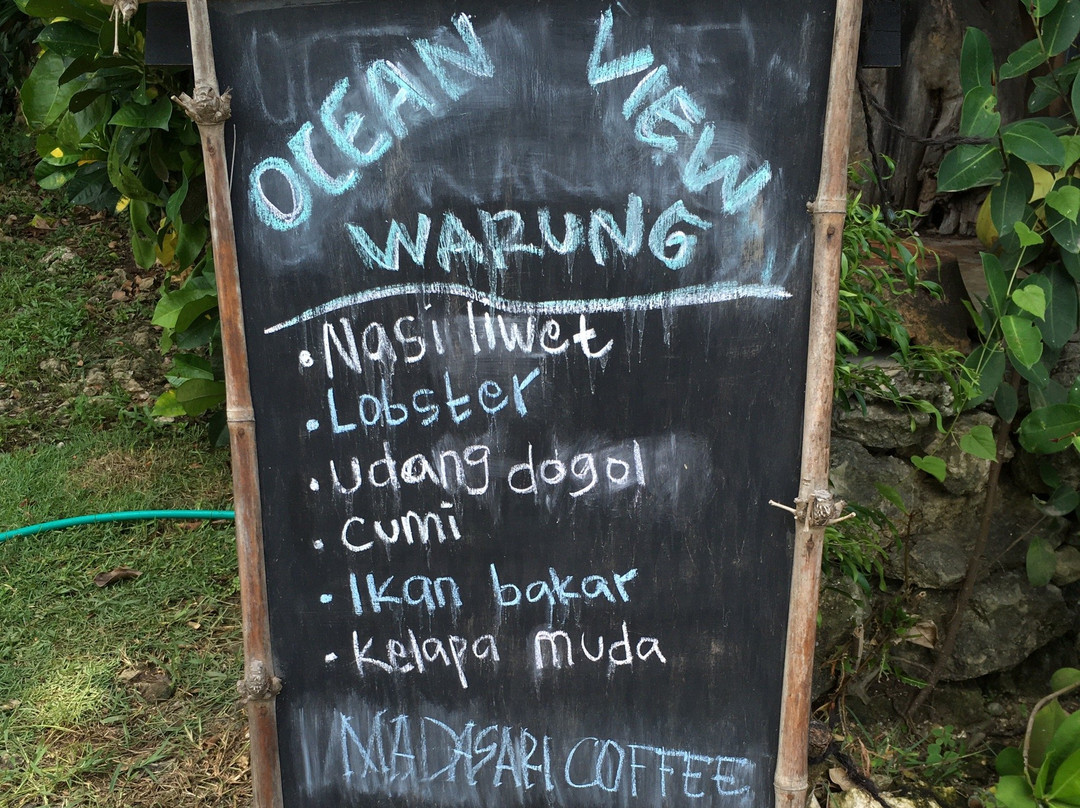 OCEAN VIEW
WARUNG
• Nasi liwet
• Lobster
• udang dogol
• cumi
• Ikan bakar
• kelapa muda
MADASARI COFFEE